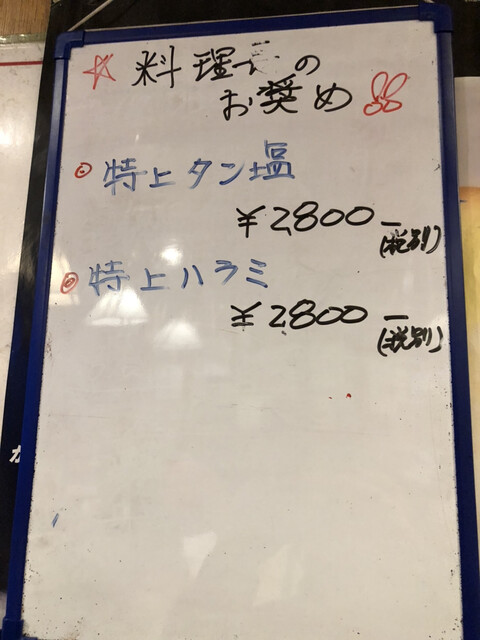 ☆ 料理長の
お奨め
特上タン塩
¥2,800ー
(税別)
特上ハラミ
¥2,800ー
(税別)
か